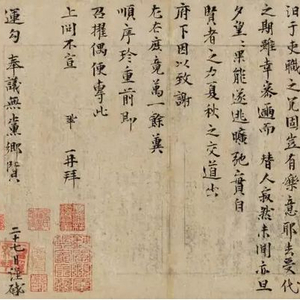 汨于吏職之冗固豈有樂意耶去受代
之期雖幸密邇而替人寂然未聞亦旦
夕望望果能遂逃曠弛實自
賢者之力夏秋之交道出
府下因以致謝
左右庶竟萬一餘冀
順序珍重前即
召擢偶便專此
上問不宣 鞏再拜
運勾奉議無黨鄉賢
二十七日謹啟